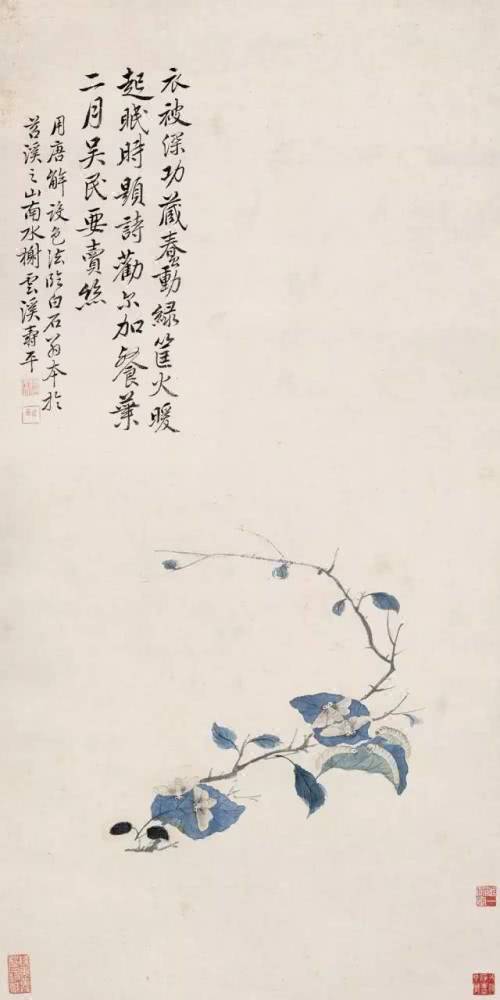 衣被深功藏蚕動綠筐火暖
起眠時題詩勸尔加餐葉
二月吴民要賣絲
用唐解設色法臨白石翁本於
苕溪之山南水榭雲溪壽平